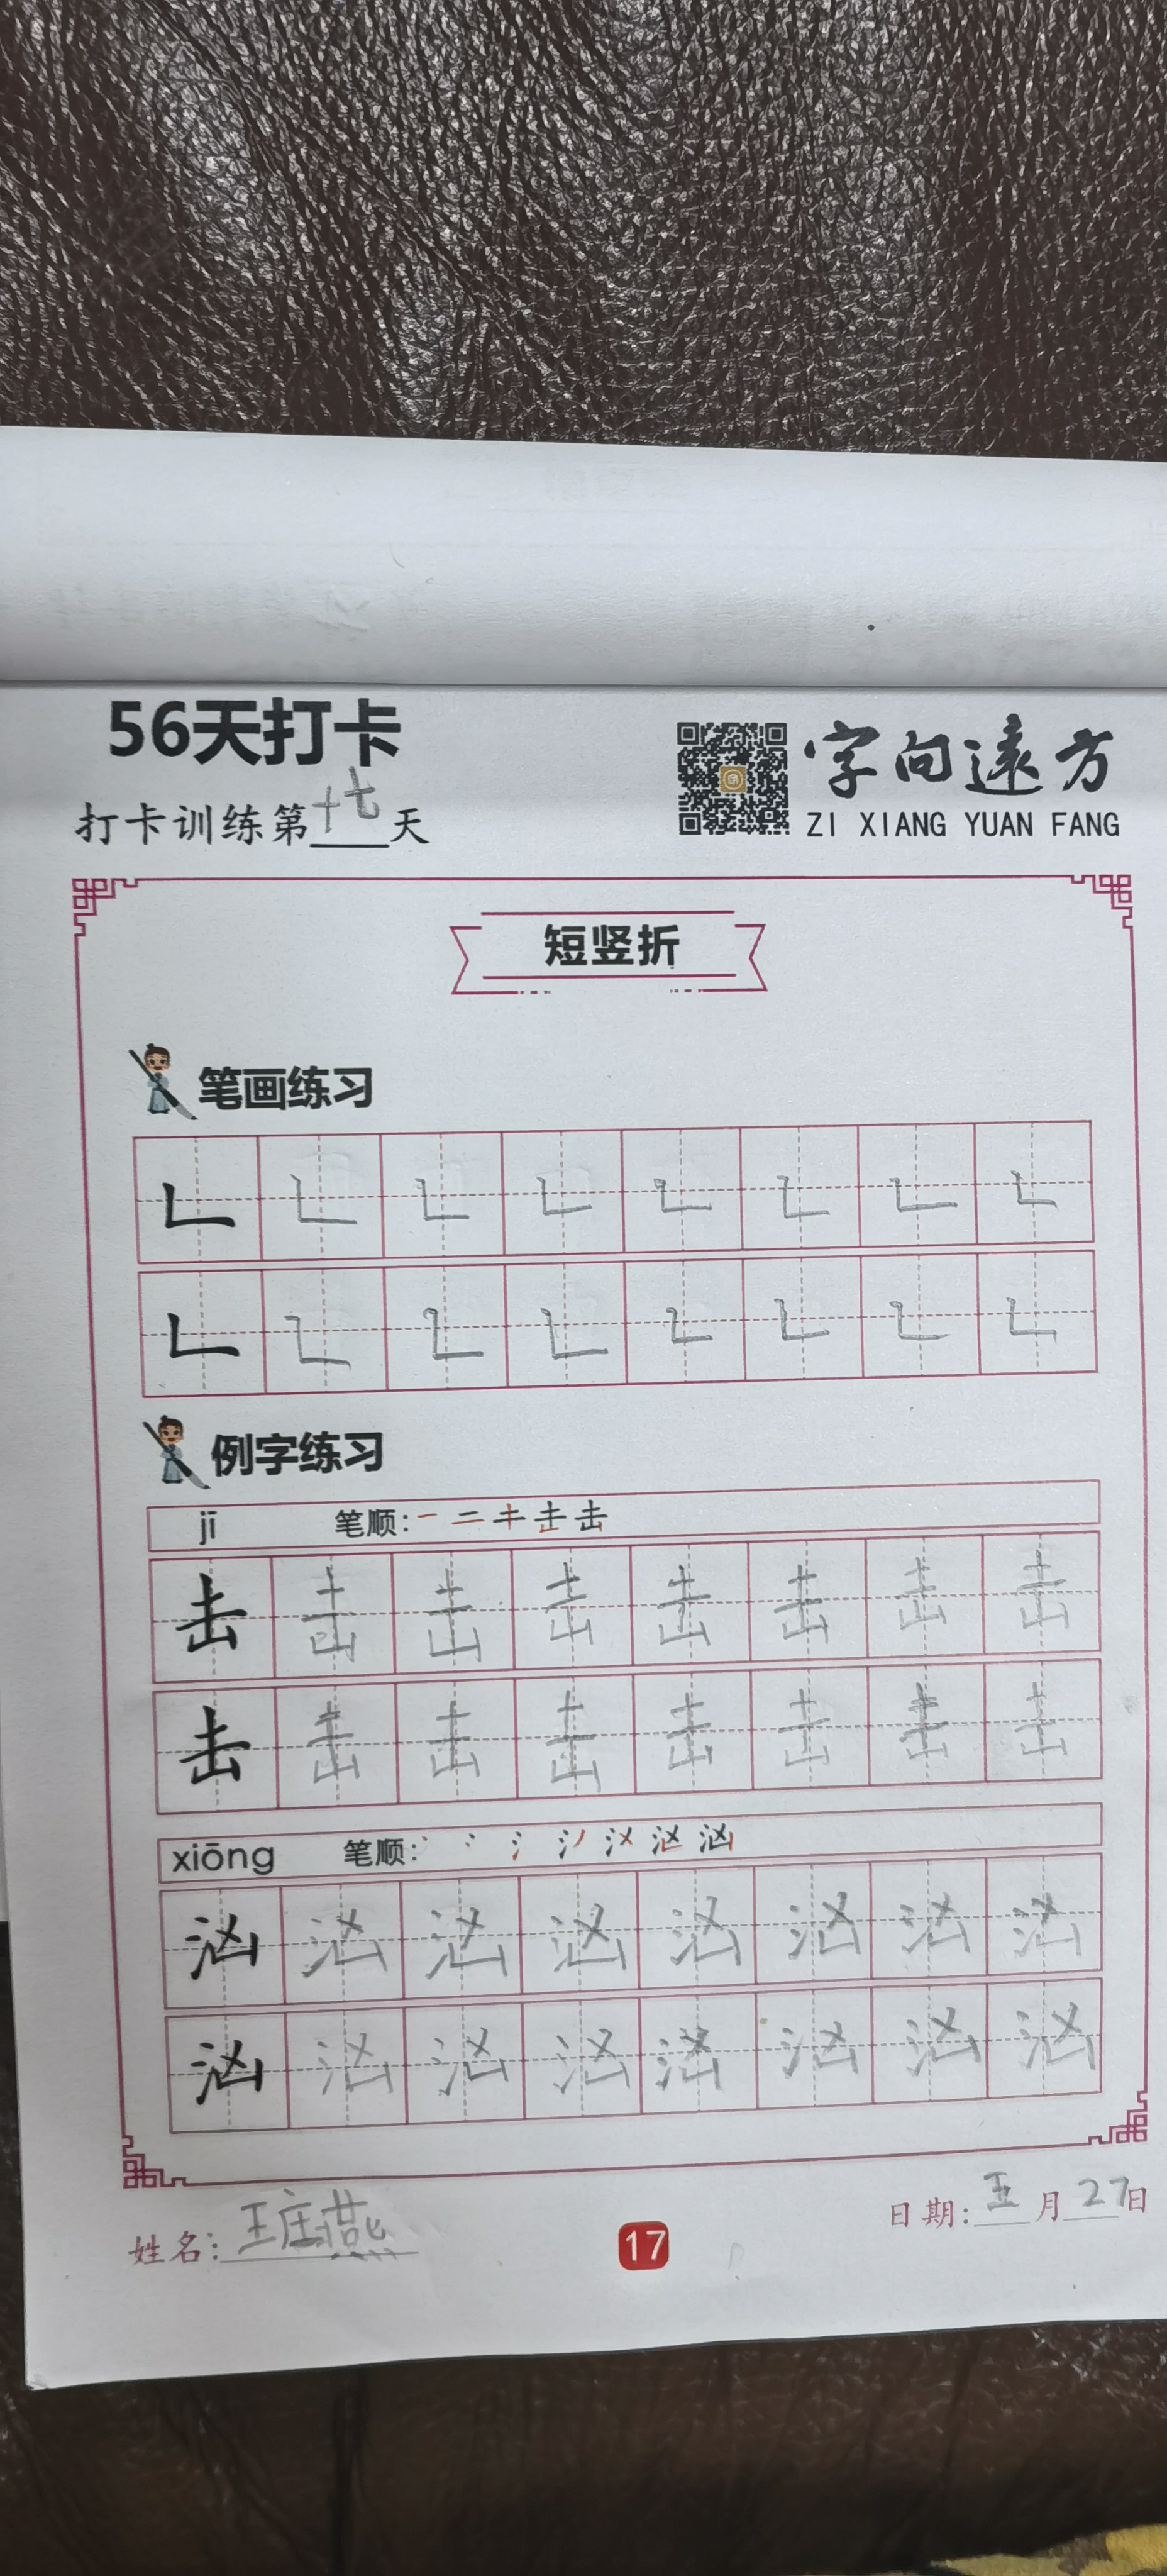 56天打卡
打卡训练第十七天
字向远方
ZI XIANG YUAN FANG
短竖折
笔画练习
例字练习
jī 笔顺:
击 击 击 击 击 击 击 击
击 击 击 击 击 击 击 击
xiōng 笔顺:
汹 汹 汹 汹 汹 汹 汹 汹
汹 汹 汹 汹 汹 汹 汹 汹
姓名: 王庄燕
17
日期: 五月27日